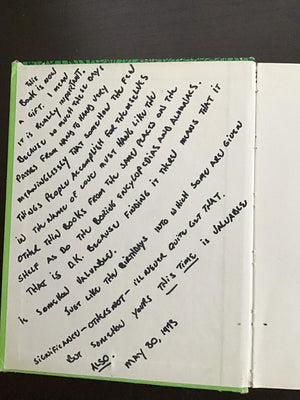 THIS
BOOK IS NOW
A GIFT. I MEAN
IT IS REALLY IMPORTANT.
BECAUSE SO MUCH THESE DAYS
PASSES FROM HAND TO HAND VERY
MEANINGLESSLY THAT SOMEHOW THE FEW
THINGS PEOPLE ACCOMPLISH FOR THEMSELVES
IN THE NAME OF LOVE MUST HANG LIKE THE
OTHER THIN BOOKS FROM THE SAME PLACES ON THE
SHELF AS DO THE BORING ENCYCLOPEDIAS AND ALMANACS.
THAT IS O.K. BECAUSE FINDING IT THERE MEANS THAT IT
IS SOMEHOW VALUABLE.
JUST LIKE THE BIRTHDAYS INTO WHICH SOME ARE GIVEN
SIGNIFICANCE—OTHERS NOT—I'LL NEVER QUITE GET THAT.
BUT SOMEHOW YOURS THIS TIME IS VALUABLE
ALSO.
MAY 30, 1993